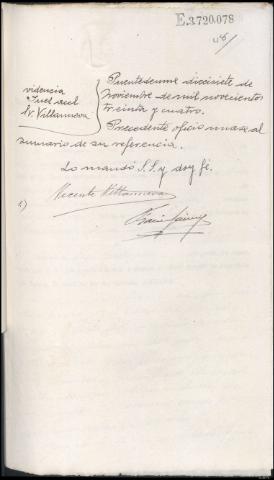 E.3.720.078
48/
videncia
Juez acel
Sr. Villanueva
Puentedeume diecisiete de
Noviembre de mil novecientos
treinta y cuatro.
Precedente oficio únase al
sumario de su referencia.
Lo mandó S.S. y doy fé.
Vicente Villanueva